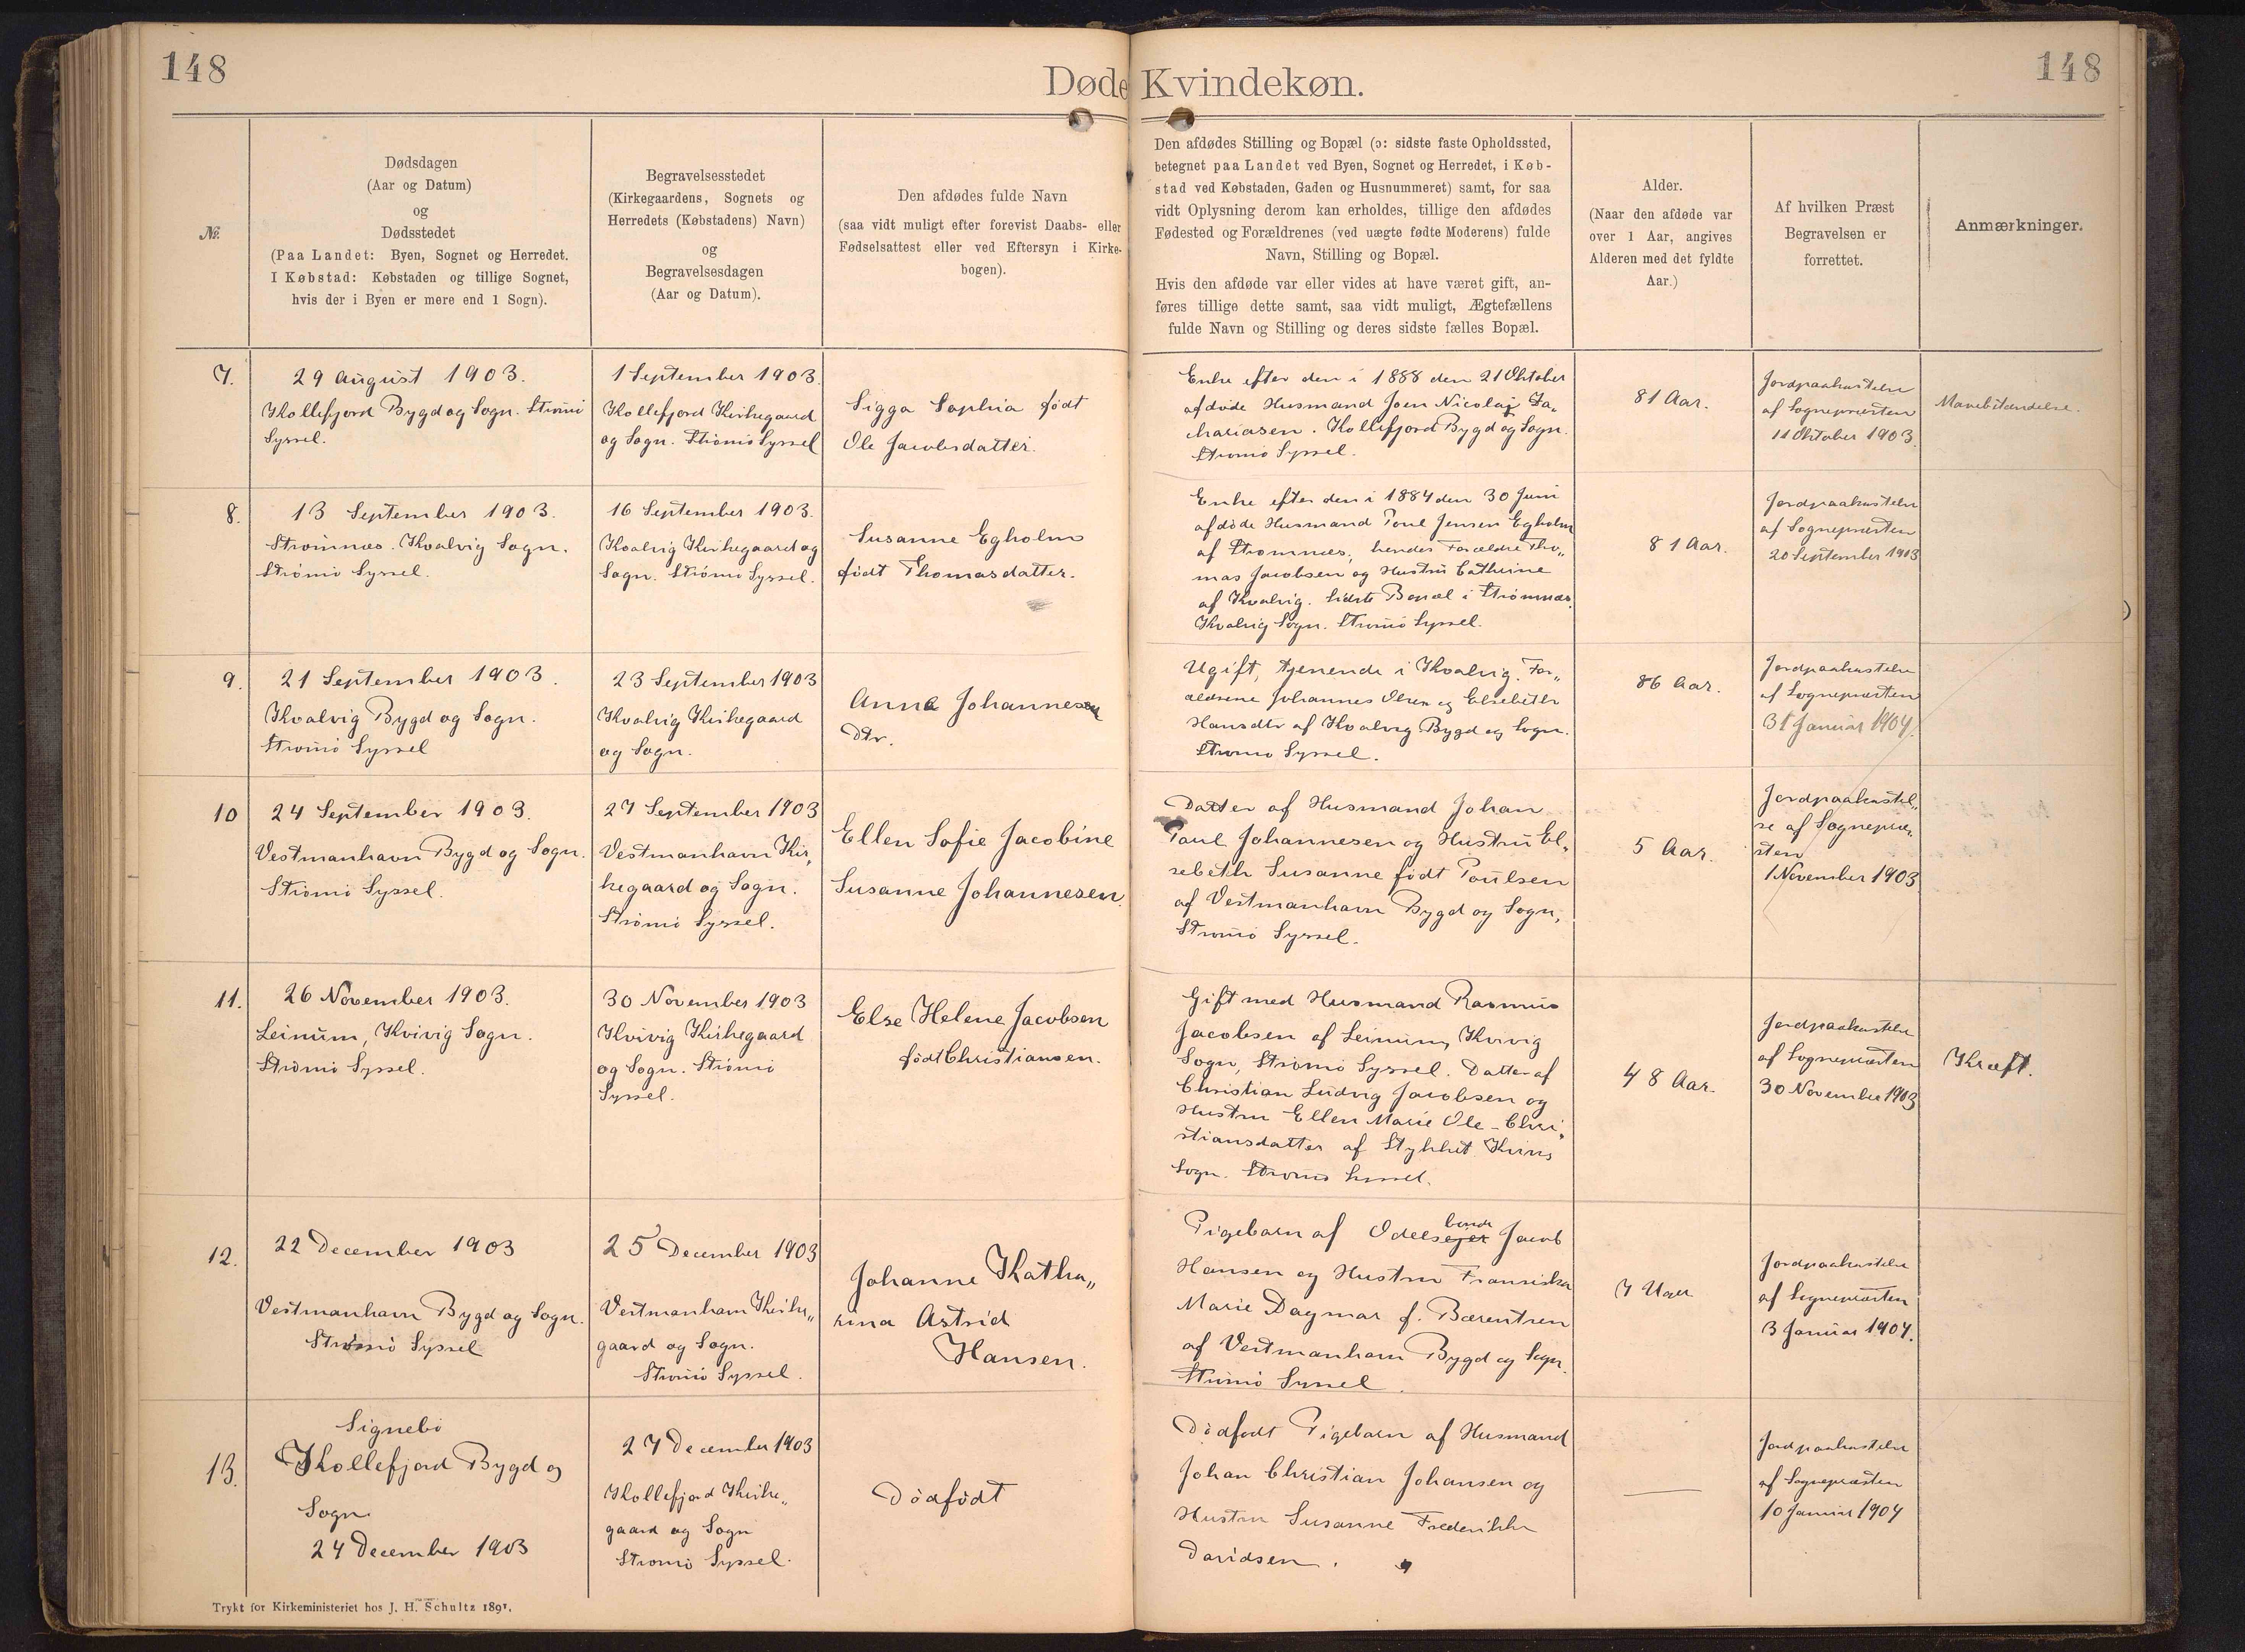 148
148
Døde Kvindekøn.
№.
Dødsdagen
(Aar og Datum)
og
Dødsstedet
(Paa Landet: Byen, Sognet og Herredet.
I Købstad: Købstaden og tillige Sognet,
hvis der i Byen er mere end 1 Sogn).
Begravelsesstedet
(Kirkegaardens, Sognets og
Herredets (Købstadens) Navn)
og
Begravelsesdagen
(Aar og Datum).
Den afdødes fulde Navn
(saa vidt muligt efter forevist Daabs- eller
Fødselsattest eller ved Eftersyn i Kirke-
bogen).
Den afdødes Stilling og Bopæl (ɔ: sidste faste Opholdssted,
betegnet paa Landet ved Byen, Sognet og Herredet, i Køb-
stad ved Købstaden, Gaden og Husnummeret) samt, for saa
vidt Oplysning derom kan erholdes, tillige den afdødes
Fødested og Forældrenes (ved uægte fødte Moderens) fulde
Navn, Stilling og Bopæl.
Hvis den afdøde var eller vides at have været gift, an-
føres tillige dette samt, saa vidt muligt, Ægtefællens
fulde Navn og Stilling og deres sidste fælles Bopæl.
Alder.
(Naar den afdøde var
over 1 Aar, angives
Alderen med det fyldte
Aar.)
Af hvilken Præst
Begravelsen er
forrettet.
Anmærkninger.
7.
29 August 1903.
Kollefjord Bygd og Sogn. Strömö
Syssel.
1 September 1903.
Kollefjord Kirkegaard
og Sogn. Strömö Syssel
Sigga Sophia födt
Ole Jacobsdatter.
Enke efter den i 1888 den 21 Oktober
afdöde Husmand Joen Nicolaj Za„
chariasen. Kollefjord Bygd og Sogn.
Strömö Syssel.
81 Aar.
Jordpaakastelse
af Sognepræsten
11 Oktober 1903.
Mavebetændelse.
8.
13 September 1903.
Strömnæs. Kvalvig Sogn.
Strömö Syssel.
16 September 1903.
Kvalvig Kirkegaard og
Sogn. Strömö Syssel.
Susanne Egholm
födt Thomasdatter.
Enke efter den i 1884 den 30 Juni
afdöde Husmand Poul Jensen Egholm
af Strömnæs, hendes Forældre Tho„
mas Jacobsen og Hustru Cathrine
af Kvalvig. Sidste Bopæl i Strömnæs.
Kvalvig Sogn. Strömö Syssel.
81 Aar.
Jordpaakastelse
af Sognepræsten
20 September 1903
9.
21 September 1903.
Kvalvig Bygd og Sogn.
Strömö Syssel
23 September 1903
Kvalvig Kirkegaard
og Sogn.
Anna Johannesen
Dtr.
Ugift, tjenende i Kvalvig. For„
ældrene Johannes Olsen og Elsebeth
Hansdtr af Kvalvig Bygd og Sogn.
Strömö Syssel.
86 Aar.
Jordpaakastelse
af Sognepræsten
31 Januar 1904.
10
24 September 1903.
Vestmanhavn Bygd og Sogn.
Strömö Syssel.
27 September 1903
Vestmanhavn Kir„
kegaard og Sogn.
Strömö Syssel.
Ellen Sofie Jacobine
Susanne Johannesen.
Datter af Husmand Johan
Poul Johannesen og Hustru El„
sebeth Susanne födt Poulsen
af Vestmanhavn Bygd og Sogn,
Strömö Syssel.
5 Aar.
Jordpaakastel„
se af Sognepræ„
sten
1 November 1903
11.
26 November 1903.
Leinum, Kvivig Sogn.
Strömö Syssel.
30 November 1903
Kvivig Kirkegaard
og Sogn. Strömö
Syssel.
Else Helene Jacobsen
födt Christiansen.
Gift med Husmand Rasmus
Jacobsen af Leinum, Kvivig
Sogn, Strömö Syssel. Datter af
Christian Ludvig Jacobsen og
Hustru Ellen Marie Ole-Chri„
stiansdatter af Stykket
Sogn. Strömö Syssel.
48 Aar.
Jordpaakastelse
af Sognepræsten
30 November 1903
Kræft.
12.
22 December 1903
Vestmanhavn Bygd og Sogn.
Strömö Syssel
25 December 1903
Vestmanhavn Kirke„
gaard og Sogn.
Strömö Syssel.
Johanne Katha„
rina Astrid
Hansen.
bonde
Pigebarn af Odelsejer Jacob
Hansen og Hustru Fransiska
Marie Dagmar f. Bærentsen
af Vestmanhavn Bygd og Sogn.
Strömö Syssel.
7 Uger
Jordpaakastelse
af Sognepræsten
3 Januar 1904.
13.
Signebö
Kollefjord Bygd og
Sogn
24 December 1903
27 December 1903
Kollefjord Kirke„
gaard og Sogn
Strömö Syssel.
Dödfödt
Dödfödt Pigebarn af Husmand
Johan Christian Johansen og
Hustru Susanne Frederikke
Davidsen.
Jordpaakastelse
af Sognepræsten
10 Januar 1904
Trykt for Kirkeministeriet hos J. H. Schultz 1891.